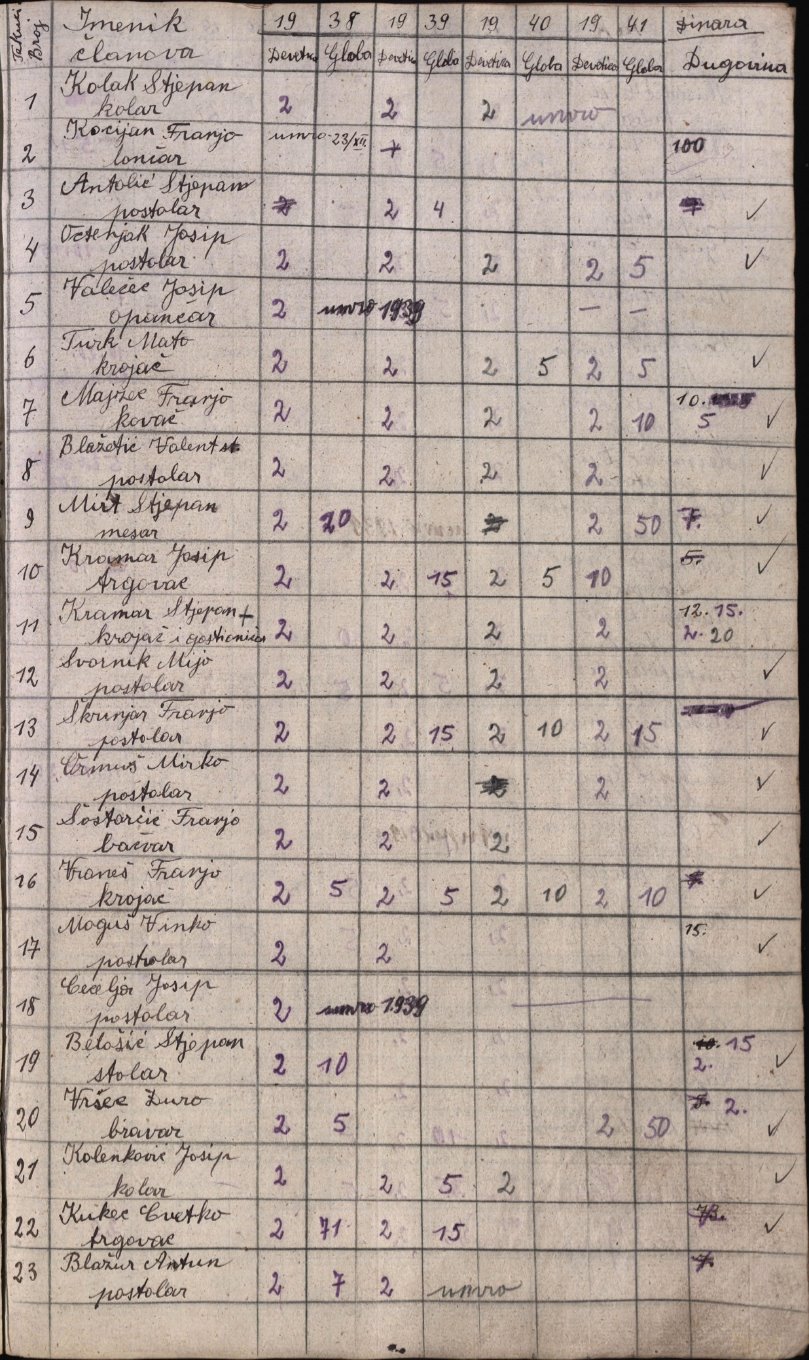 Tekući Broj Imenik 19 38 19 39 19 40 19 41 Dinara
članova Devetica Globa Devetica Globa Devetica Globa Devetica Globa Dugovina
1 Kolak Stjepan
kolar 2 2 2 umro
2 Kocijan Franjo umro 23/XII. + 100
lončar
3 Antolić Stjepan
postolar 2 2 4 7 ✓
4 Octenjak Josip
postolar 2 2 2 2 5 ✓
5 Valečec Josip
opančar 2 umro 1939 — —
6 Turk Mato
krojač 2 2 2 5 2 5 ✓
7 Majžec Franjo 10.
kovač 2 2 2 2 10 5 ✓
8 Blažetić Valent
postolar 2 2 2 2 ✓
9 Mirt Stjepan
mesar 2 20 2 2 50 7. ✓
10 Kramar Josip 5.
trgovac 2 2 15 2 5 10 ✓
11 Kramar Stjepan + 12. 15.
krojač i gostioničar 2 2 2 2 2. 20
12 Svornik Mijo
postolar 2 2 2 2 ✓
13 Škrinjar Franjo
postolar 2 2 15 2 10 2 15 ✓
14 Črmuš Mirko
postolar 2 2 2 2 ✓
15 Šoštarčić Franjo
bačvar 2 2 2 ✓
16 Vraneš Franjo 7
krojač 2 5 2 5 2 10 2 10 ✓
17 Moguš Vinko 15.
postolar 2 2 ✓
18 Cecelja Josip
postolar 2 umro 1939
19 Belošić Stjepan 10. 15
stolar 2 10 2. ✓
20 Vršec Đuro 2.
bravar 2 5 2 50 ✓
21 Kolenković Josip
kolar 2 2 5 2 ✓
22 Kukec Cvetko 73.
trgovac 2 71 2 15 ✓
23 Blažur Antun 7.
postolar 2 7 2 umro